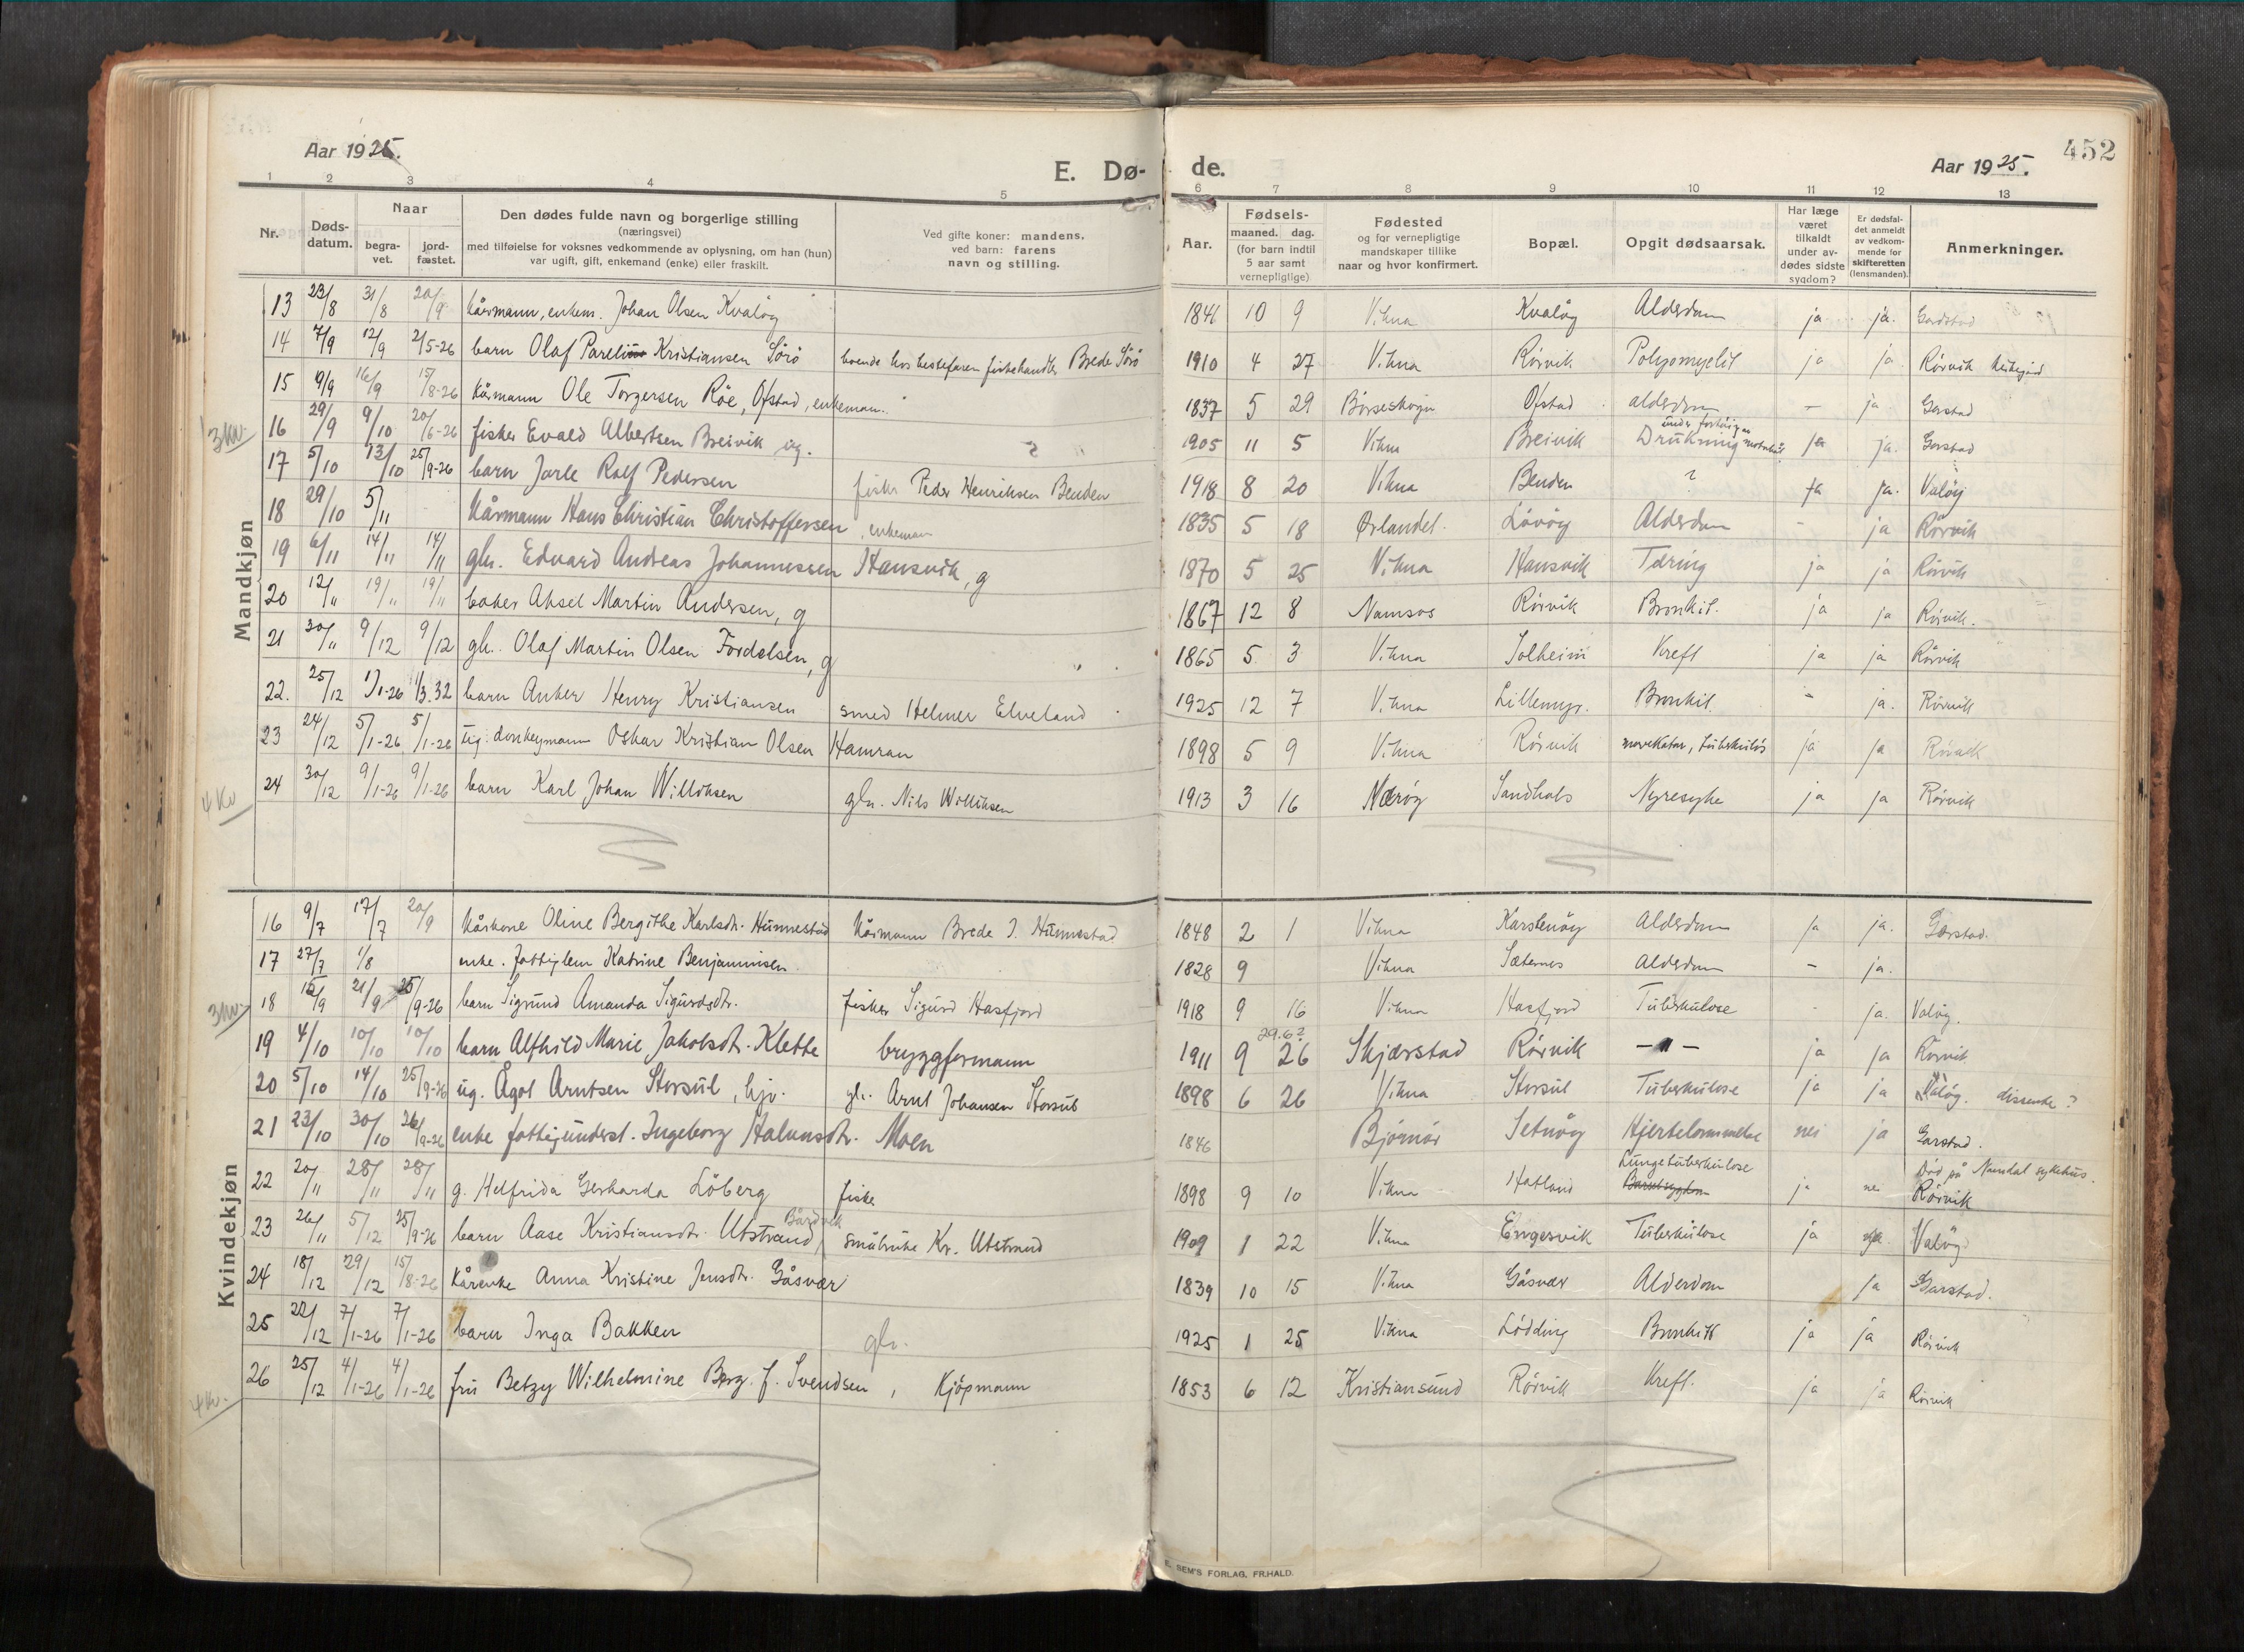 452
Aar 1925.
Aar 1925.
E. Dø- de.
1 2 3 4 5 6 7 8 9 10 11 12 13
Nr. Døds-datum. Naar begra-vet. jord-fæstet. Den dødes fulde navn og borgerlige stilling (næringsvei) med tilføielse for voksnes vedkommende av oplysning, om han (hun) var ugift, gift, enkemand (enke) eller fraskilt. Ved gifte koner: mandens. ved barn: farens navn og stilling. Aar. Fødsels- maaned. dag. (for barn indtil 5 aar samt vernepligtige) Fødested og for vernepligtige mandskaper tillike naar og hvor konfirmert. Bopæl. Opgit dødsaarsak. Har læge været tilkaldt under av-dødes sidste sygdom? Er dødsfal-det anmeldt av vedkom-mende for skifteretten (lensmanden). Anmerkninger.
Mandkjøn
13 23/8 31/8 20/9 Kårmann, enkem. Johan Olsen Kvaløy 1841 10 9 Vikna Kvaløy Alderdom ja ja. Garstad
14 7/9 12/9 2/5-26 barn Olaf Parelius Kristiansen Sörö boende hos bestefaren fiskehandler Brede Sörö 1910 4 27 Vikna Rörvik Polyomyelit ja ja Rörvik
15 9/9 16/9 15/8-26 Kårmann Ole Torgersen Röe, Ofstad, enkeman. 1837 5 29 Börseskogn Ofstad alderdom - ja Garstad
3 kv.
16 29/9 9/10 20/6-26 fisker Evald Albertsen Breivik ug. 1905 11 5 Vikna Breivik Drukning under ja ja. Garstad
17 5/10 13/10 25/9-26 barn Jarle Rolf Pedersen fisker Peder Henriksen Benden 1918 8 20 Vikna Benden ? ja ja. Valöy
18 29/10 5/11 Kårmann Hans Christian Christoffersen, enkeman 1835 5 18 Ørlandet. Lövöy Alderdom - ja Rörvik
19 6/11 14/11 14/11 gbr. Edvard Andreas Johannessen Hansvik, g 1870 5 25 Vikna Hansvik Tæring ja ja Rörvik
20 12/11 19/11 19/11 baker Aksel Martin Andersen, g 1867 12 8 Namsos Rörvik Bronkit. ja ja Rörvik.
21 30/11 9/12 9/12 gb. Olaf Martin Olsen Fordelsen, g 1865 5 3 Vikna Solheim Kreft ja ja Rörvik
22. 25/12 1/1-26 1/3.32 barn Anker Henry Kristiansen smed Helmer Elveland 1925 12 7 Vikna Lillemyr. Bronkit. - ja. Rörvik
23 24/12 5/1-26 5/1-26 ug. donkeymann Oskar Kristian Olsen Hamran 1898 5 9 Vikna Rörvik tuberkulös ja ja Rörvik
4 kv
24 30/12 9/1-26 9/1-26 barn Karl Johan Williksen gbr. Nils Williksen 1913 3 16 Nærøy Sandhals Nyresyke ja ja Rörvik
Kvindekjøn
16 9/7 17/7 20/9 Kårkone Oline Bergithe Karlsdtr. Hunnestad Kårmann Brede J. Hunnestad 1848 2 1 Vikna Karstenöy Alderdom ja ja. Garstad.
17 27/7 1/8 enke. fattiglem Katrine Benjaminsen 1828 9 Vikna Sæternes Alderdom - ja.
3 kv.
18 15/9 21/9 25/9-26 barn Sigrund Amanda Sigurdsdtr. fisker Sigurd Hasfjord 1918 9 16 Vikna Hasfjord Tuberkulose - ja. Valöy.
19 4/10 10/10 10/10 barn Alfhild Marie Jakobsdtr. Klette bryggformann 1911 9 26 29.6? Skjærstad Rörvik - " - ja ja Rörvik
20 5/10 14/10 25/9-26 ug. Ågot Arntsen Storsul, hjv. gb. Arnt Johansen Storsul 1898 6 26 Vikna Storsul Tuberkulose ja ja Valöy. dissenter?
21 23/10 30/10 26/9-26 enke fattigunderst. Ingeborg Halvnsdtr. Moen 1846 Björnör Setnöy Hjertelammelse nei ja Garstad.
22 20/11 28/11 28/11 g. Helfrida Gerharda Löberg fisker 1898 9 10 Vikna Hatland Lungetuberkulose Barselsygdom ja nei Död på Namdal sykehus. Rörvik
23 26/11 5/12 25/9-26 barn Aase Kristiansdtr. Utstrand, Bårdvik småbruker Kr. Utstrand 1909 1 22 Vikna Engesvik Tuberkulose ja ja. Valöy
24 18/12 29/12 15/8-26 Kårenke Anna Kristine Jensdtr. Gåsvær 1839 10 15 Vikna Gåsvær Alderdom ja Garstad.
25 22/12 7/1-26 7/1-26 barn Inga Bakken gbr. 1925 1 25 Vikna Lödding Bronkitt ja ja Rörvik
26 25/12 4/1-26 4/1-26 fru Betzy Wilhelmine Berg f. Svendsen, Kjöpmann 1853 6 12 Kristiansund Rörvik Kreft. ja ja Rörvik
4 kv.
E. SEM'S FORLAG, FR.HALD.